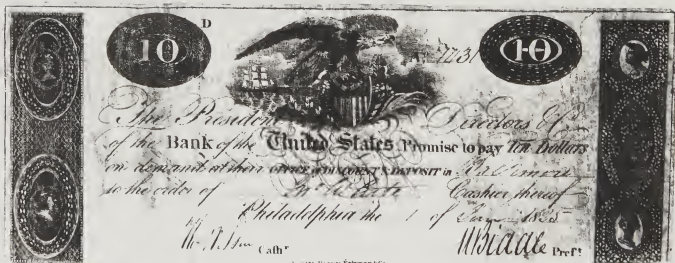 10 D 7231 10
The President Directors & Co.
of the Bank of the United States Promise to pay Ten Dollars
on demand at their OFFICE of DISCOUNT & DEPOSIT in Baltimore
to the order of Cashier thereof
Philadelphia the 1 of 1835
Cashr. N Biddle Prest.